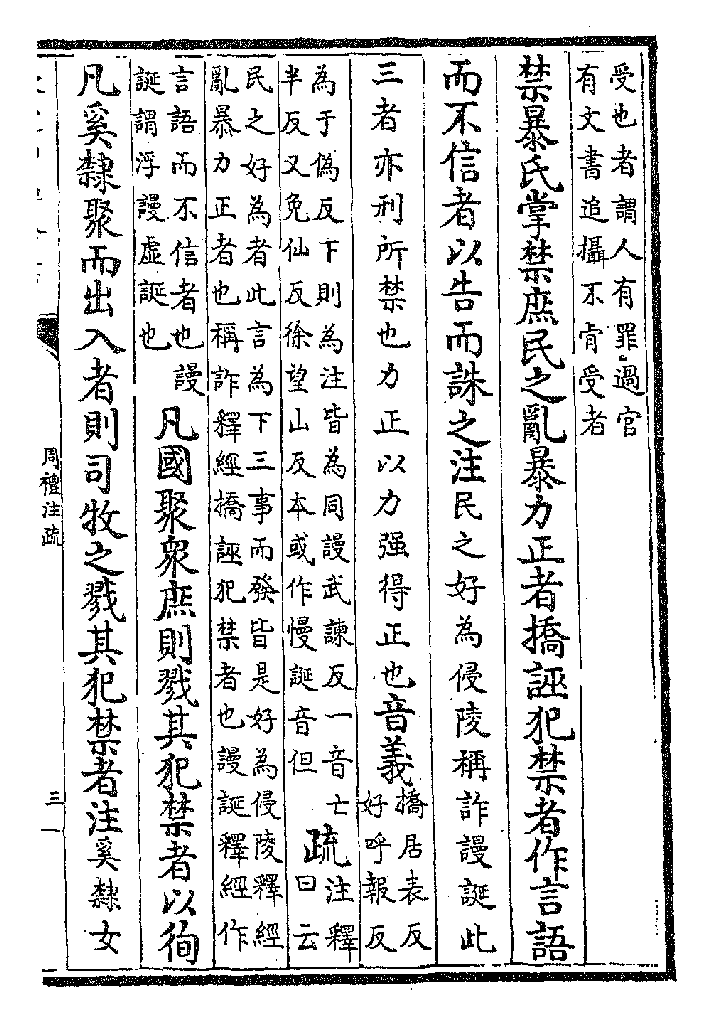 受也者謂人有罪過官
有文書追攝不肯受者
禁暴氏掌禁庶民之亂暴力正者撟誣犯禁者作言語
而不信者以告而誅之注民之好為侵陵稱詐謾誕此
三者亦刑所禁也力正以力强得正也音義
撟居表反
好呼報反
為于偽反下則為注皆為同謾武諫反一音亡
半反又免仙反徐望山反本或作慢誕音但
疏
注釋
曰云
民之好為者此言為下三事而發皆是好為侵陵釋經
亂暴力正者也稱詐釋經撟誣犯禁者也謾誕釋經作
言語而不信者也謾
誕謂浮謾虛誕也
凡國聚衆庶則戮其犯禁者以徇
凡奚隸聚而出入者則司牧之戮其犯禁者注奚隸女
周禮注疏
三